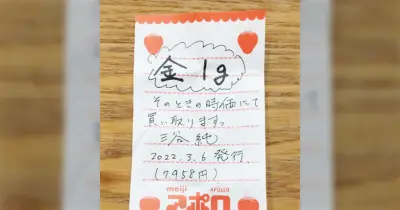 金 1g
そのときの時価にて
買い取ります。
三谷純
2022.3.6 発行
(7,958円)
meiji
アポロ